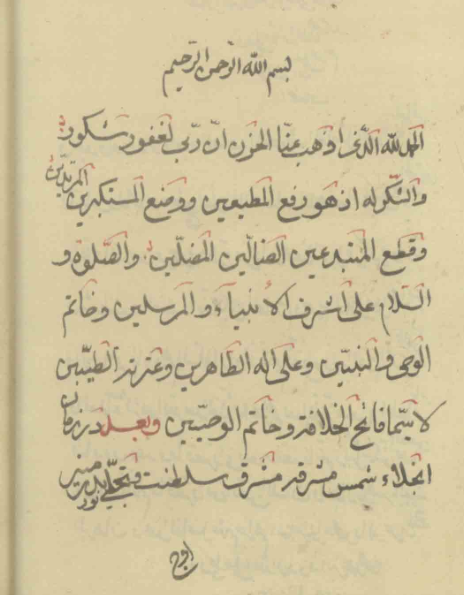 بسم الله الرحمن الرحيم
الحمد لله الذى اذهب عنّا الحزن انّ ربى لغفور شكور
والشكر له اذ هو رفع المطيعين ووضع المستكبرين المرتدّين
وقطع المبتدعين الضالّين المضلّين والصّلوة و
السّلام على اشرف الانبيآء والمرسلين وخاتم
الوحى والنبيّين وعلى اله الطاهرين وعترته الطيّبين
لا سيّما فاتح الخلافة وخاتم الوصيّين وبعد در زمان
انجلاء شمس مشرقه مشرق سلطنت وتجلّى بدر منير